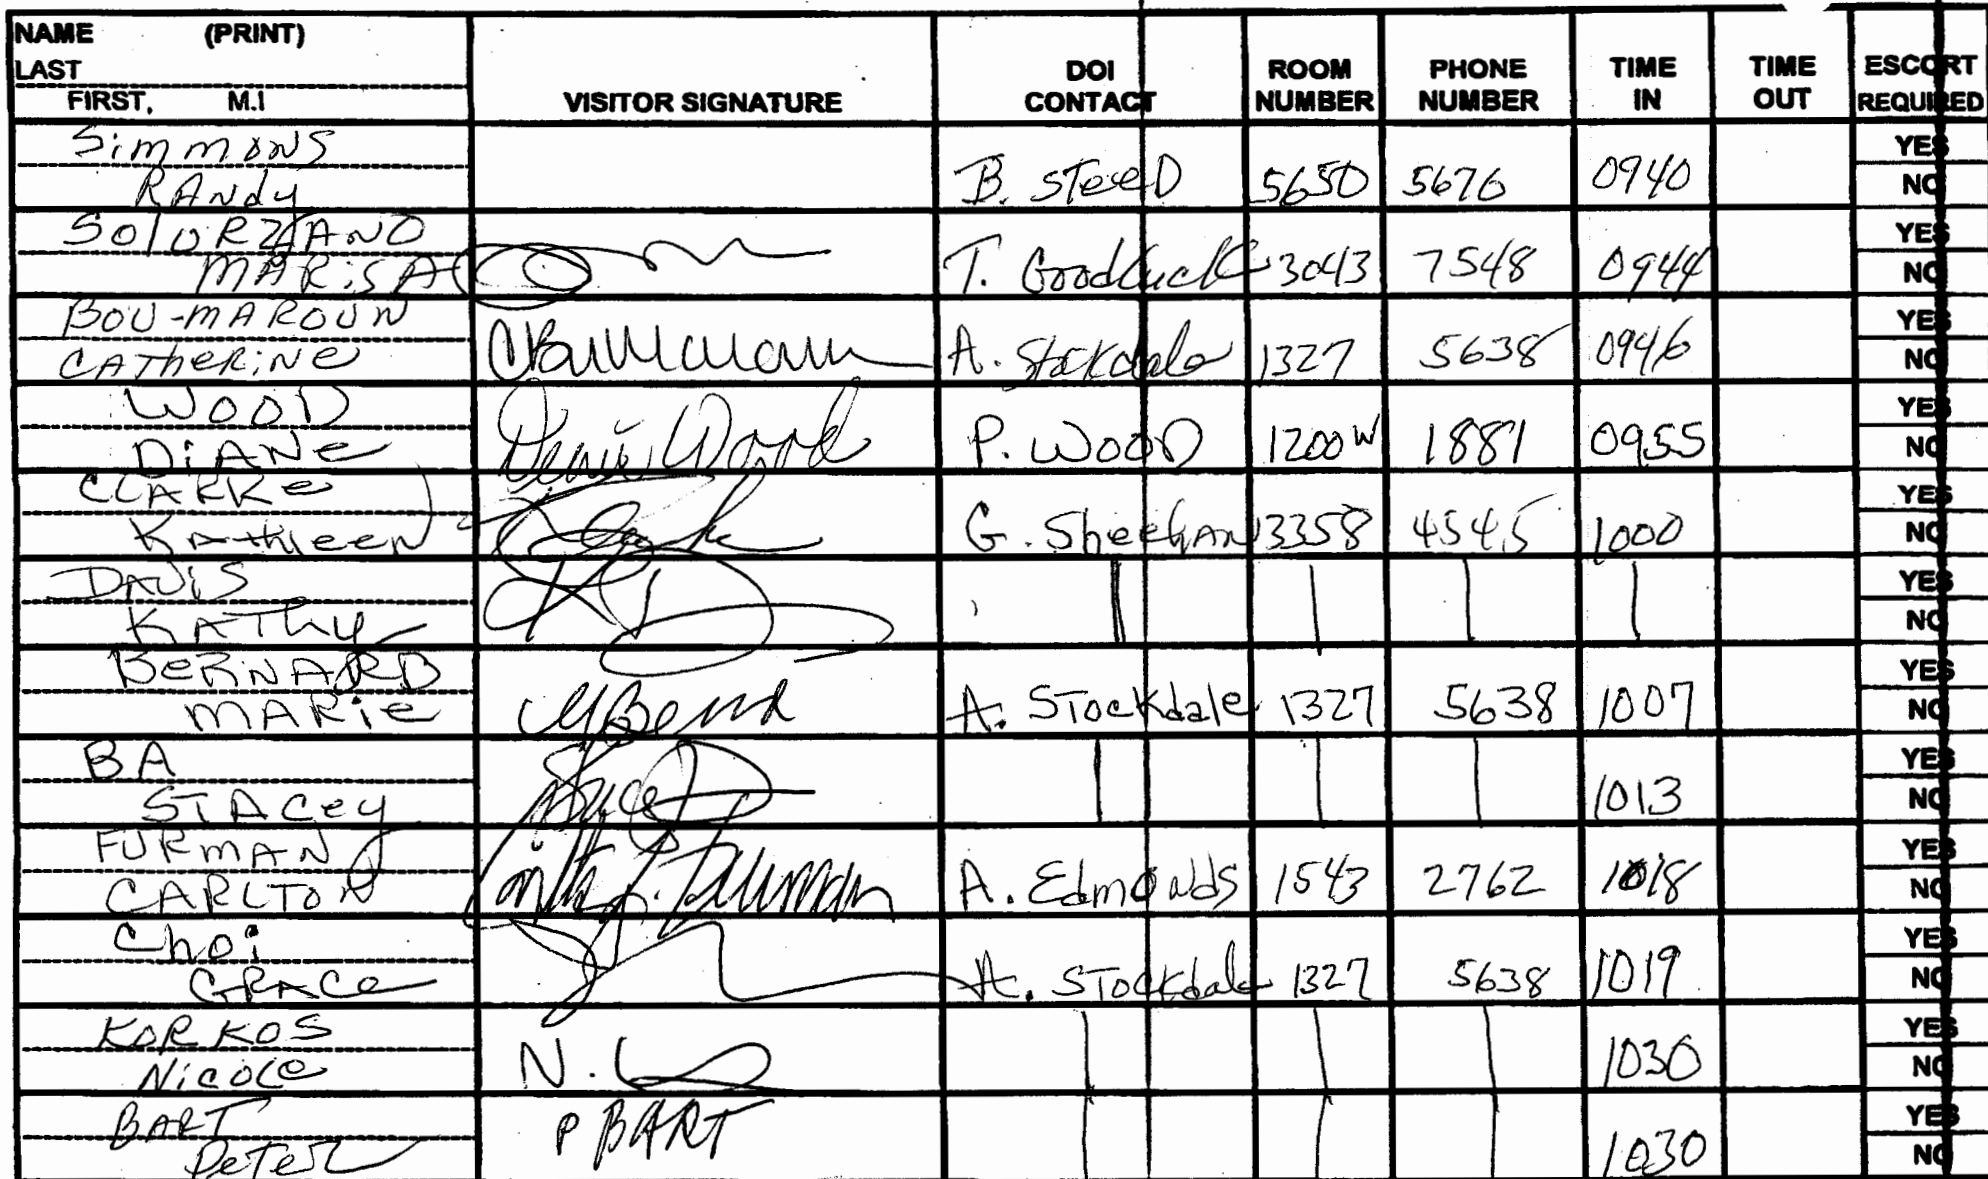 NAME (PRINT)
LAST
FIRST, M.I
VISITOR SIGNATURE
DOI CONTACT
ROOM NUMBER
PHONE NUMBER
TIME IN
TIME OUT
ESCORT REQUIRED
Simmons
RANdy
B. STeeD 5650 5676 0940 YES
NO
SOlORZANO
MARiSA
T. Goodluck 3043 7548 0944 YES
NO
BOU-MAROUN
CATHeRiNe
A. Stockdale 1327 5638 0946 YES
NO
WOOD
DiANe
Wood P. WOOD 1200W 1881 0955 YES
NO
CLARKe
KAthleen
G. SheehAN 3358 4545 1000 YES
NO
DAViS
KAThy
YES
NO
BeRNARD
MARie
A. STockdale 1327 5638 1007 YES
NO
BA
STACey
1013 YES
NO
FURMAN
CARLTON
A. EdmoNds 1543 2762 1018 YES
NO
Choi
GRACe
A. STockdale 1327 5638 1019 YES
NO
KORKOS
NicOle
N. 1030 YES
NO
BART
PeTeR
P BART 1030 YES
NO